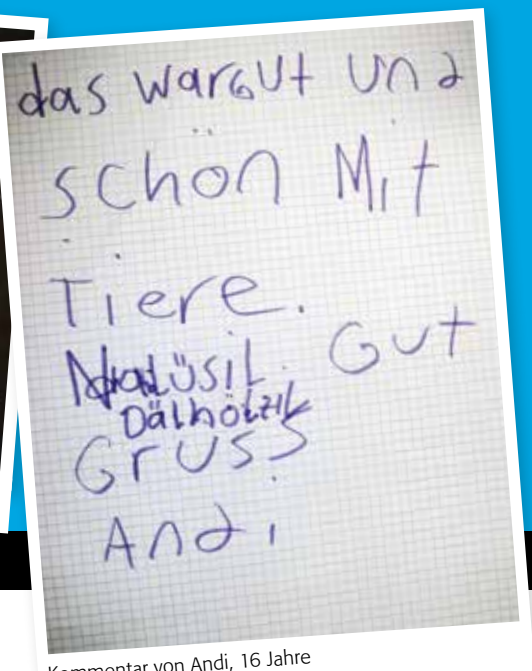 das war Gut und
schön Mit
Tiere.
Gut
Dälhölzli
Gruss
Andi
Kommentar von Andi, 16 Jahre